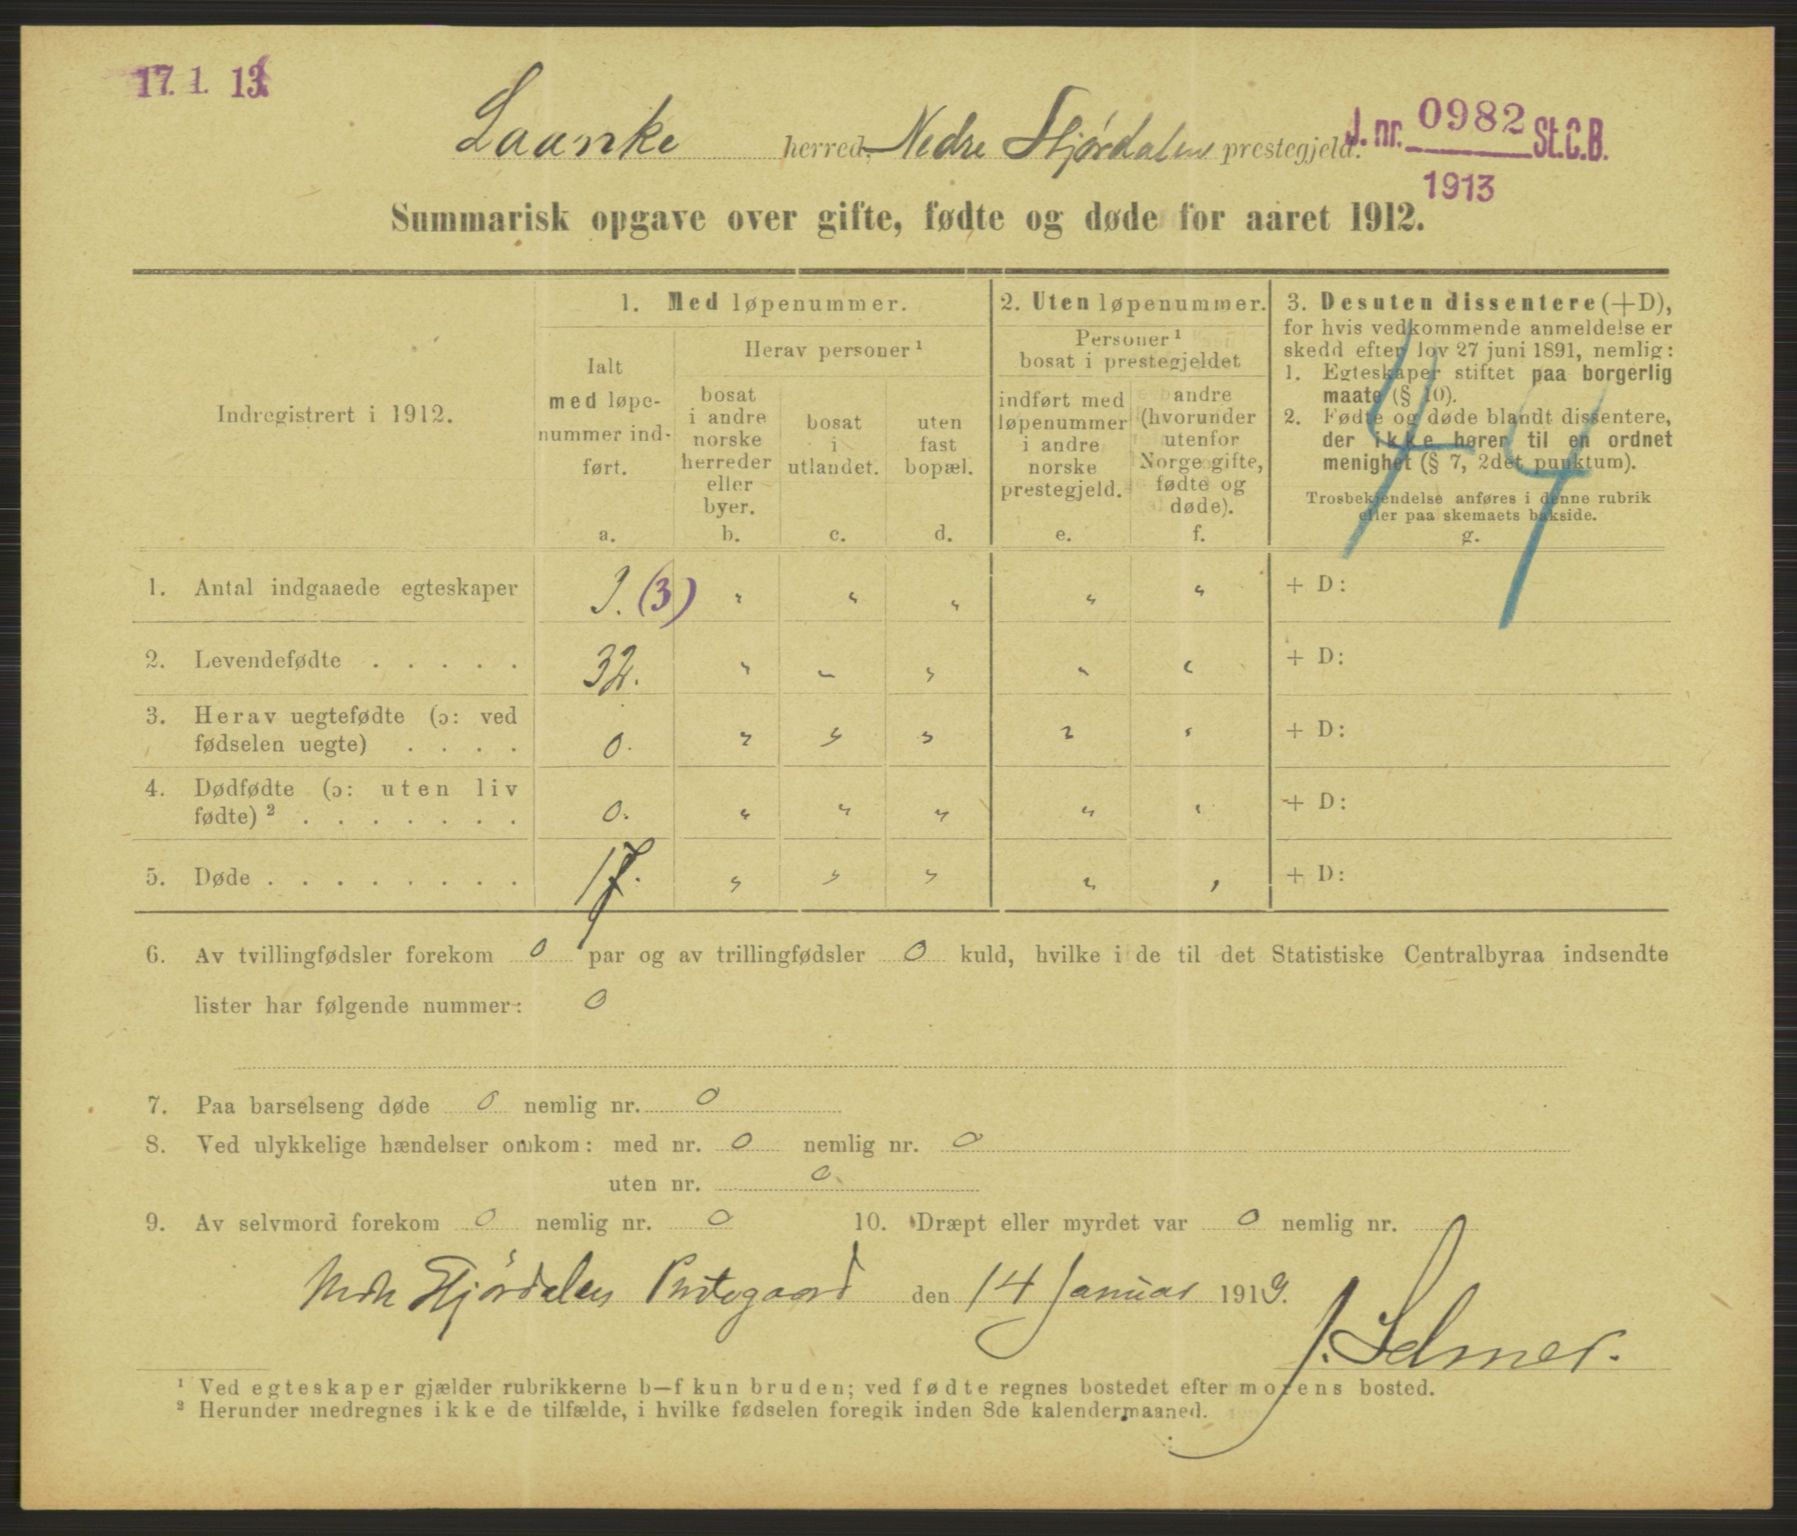 17. 1. 13
J. nr. 0982 St.C.B.
1913
Laanke herred, Nedre Stjørdalens prestegjeld.
Summarisk opgave over gifte, fødte og døde for aaret 1912.
Indregistrert i 1912.
1. Med løpenummer.
Ialt
med løpe-
nummer ind-
ført.
a.
Herav personer ¹
bosat
i andre
norske
herreder
eller
byer.
b.
bosat
i
utlandet.
c.
uten
fast
bopæl.
d.
2. Uten løpenummer.
Personer ¹
bosat i prestegjeldet
indført med
løpenummer
i andre
norske
prestegjeld.
e.
andre
(hvorunder
utenfor
Norge gifte,
fødte og
døde).
f.
3. Desuten dissentere (+D),
for hvis vedkommende anmeldelse er
skedd efter lov 27 juni 1891, nemlig:
1. Egteskaper stiftet paa borgerlig
maate (§ 10).
2. Fødte og døde blandt dissentere,
der ikke hører til en ordnet
menighet (§ 7, 2det punktum).
Trosbekjendelse anføres i denne rubrik
eller paa skemaets bakside.
g.
1. Antal indgaaede egteskaper 3. (3) " " " " " + D:
2. Levendefødte . . . . . 32. " " " " " + D:
3. Herav uegtefødte (ɔ: ved
fødselen uegte) . . . . 0. " " " " " + D:
4. Dødfødte (ɔ: uten liv
fødte) ² . . . . . . . 0. " " " " " + D:
5. Døde . . . . . . . . 17. " " " " " + D:
6. Av tvillingfødsler forekom 0 par og av trillingfødsler 0 kuld, hvilke i de til det Statistiske Centralbyraa indsendte
lister har følgende nummer: 0
7. Paa barselseng døde 0 nemlig nr. 0
8. Ved ulykkelige hændelser omkom: med nr. 0 nemlig nr. 0
uten nr. 0.
9. Av selvmord forekom 0 nemlig nr. 0 10. Dræpt eller myrdet var 0 nemlig nr.
Stjördalens den 14 Januar 1913.
J. Selmer.
¹ Ved egteskaper gjælder rubrikkerne b—f kun bruden; ved fødte regnes bostedet efter morens bosted.
² Herunder medregnes ikke de tilfælde, i hvilke fødselen foregik inden 8de kalendermaaned.